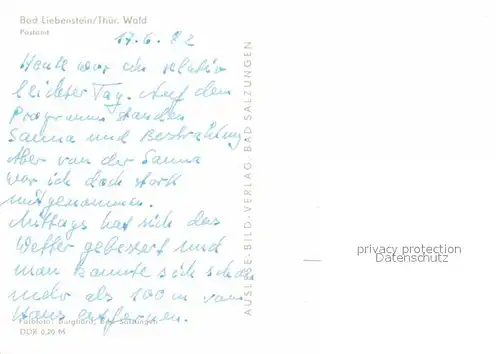 Bad Liebenstein/Thür. Wald
Postamt
17.6.82
Heute war ein relativ
leichter Tag. Auf dem
Programm standen
Sauna und Bestrahlung
Aber von der Sauna
war ich doch stark
mitgenommen.
Mittags hat sich das
Wetter gebessert und
man konnte sich schon
mehr als 100 m vom
Haus entfernen.
Farbfoto: Burghard, Bad Salzungen
DDR 0,20 M
AUSLESE-BILD-VERLAG, BAD SALZUNGEN
privacy protection
Datenschutz